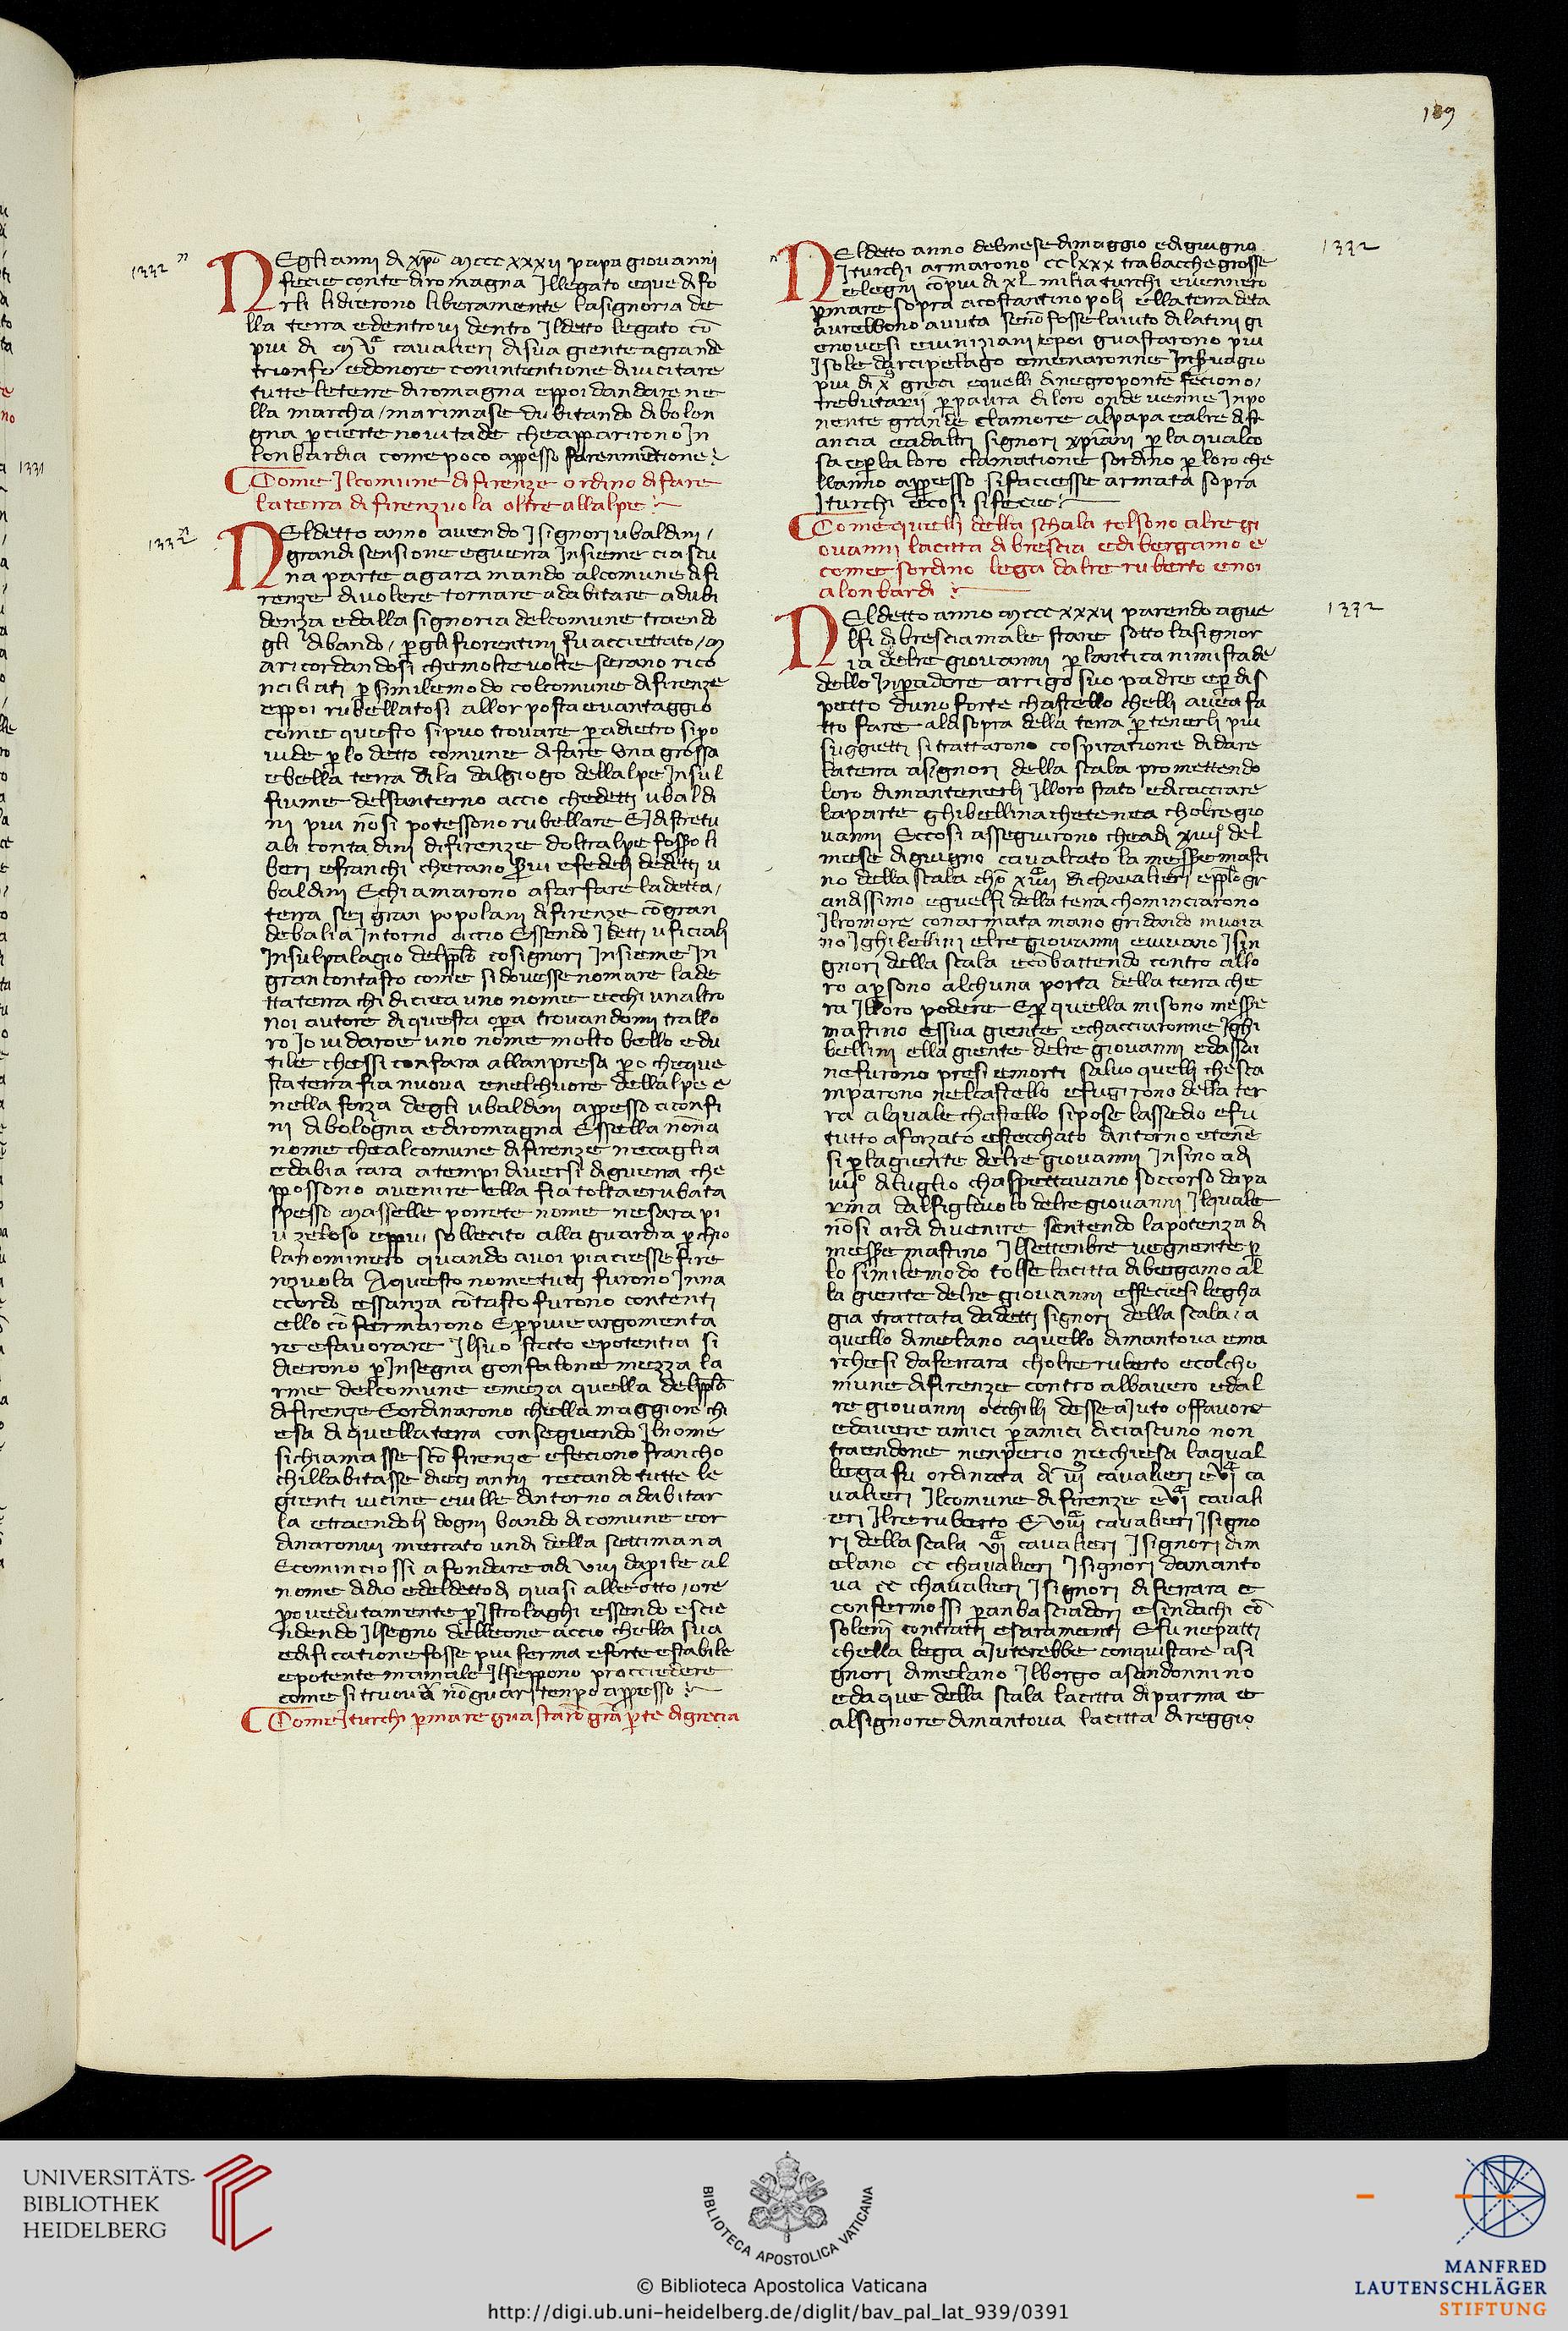 189
1332
Negli anni di xpo mccc xxxii papa giovanni
fecie conte di romagna Illegato e que di fo
rli li dierono liberamente la signoria de
lla terra e dentrovi dentro Il detto legato co
piu di cavalieri di sua giente a grande
trionfo e donore con intentione di vicitare
tutte le terre di romagna e ppoi dandare ne
lla marcha / ma rimase dubitando di bolon
gna p cierte novitade che apparirono In
lonbardia come poco appresso faren mentione
Come Il comune di firenze ordino di fare
la terra di firenzuola oltre allalpe
1332
Nel detto anno avendo I signori ubaldini /
grandi sensione e guerra Insieme ciascu
na parte a gara mando al comune di fi
renze di volere tornare ad abitare a dubi
denza e dalla signoria del comune traendo
gli di bando / p gli fiorentini fu acciettato / m
a ricordandosi che molte volte serano rico
nciliati p simile modo col comune di firenze
e ppoi rubellatosi a llor posta e vantaggio
come questo si puo trovare p adietro si po
vide p lo detto comune di fare Una grossa
e bella terra di la dal giogo dellalpe In sul
fiume del santerno accio che detti ubaldi
ni piu no si potessono rubellare E I distretu
ali contadini di firenze doltralpe fosso li
beri e franchi cherano svi e fedeli de detti u
baldini E chiamarono a far fare la detta /
terra sei gran popolani di firenze co gran
de balia Intorno accio Essendo I detti uficiali
In sul palagio del pplo co signori Insieme In
gran contasto come si dovesse nomare la de
tta terra chi diciea uno nome e cchi un altro
noi autore di questa opa trovandomi tra llo
ro Io vi daroe uno nome molto bello e du
tile che ssi confara allanpresa po che que
sta terra fia nuova e nel chuore dellalpe e
nella forza degli ubaldini appresso a confi
ni di bologna e di romagna E ssella nona
nome che al comune di firenze ne caglia
e dabia cara a tempi diversi di guerra che
ppossono avenire ella fia tolta e rubata
spesso Ma sselle porrete nome ne sara pi
u zeloso e ppiu sollecito alla guardia p chio
la nominero quando a voi piaciesse fire
nzuola A questo nome tutti furono Inna
ccordo e ssanza contasto furono contenti
e llo co fermarono E p piue argomenta
re e favorare Il suo stato e potentia si
dierono p Insegna gonfalone mezza la
rme del comune e meza quella del pplo
di firenze E ordinarono che lla maggiore chi
esa di quella terra conseguendo Il nome
si chiamasse sco firenze e feciono francho
chi llabitasse dieci anni recando tutte le
gienti vicine e ville dintorno ad abitar
la e traendoli dogni bando di comune e or
dinaronvi mercato un di della settimana
E cominciossi a fondare a di viii daprile al
nome di dio e del detto di quasi alle otto / ore
povedutamente p Istrolaghi essendo e scie
ndendo Il segno del leone accio che lla sua
edificatione fosse piu ferma e forte e stabile
e potente ma male Il seppono procciedere
come si truova no guari tenpo appresso
Come I turchi p mare guastaro gra pte di grecia
1332
Nel detto anno del mese di maggio e di giugno
I turchi armarono cc lxxx tra bacche grosse
e legni co piu di xl milia turchi e vennero
p mare sopra a costantinopoli e lla terra deta
aurebbono avuta seno fosse laiuto di latini gi
enovesi e viniziani e poi guastarono piu
Isole darcipelago e menaronne In srvagio
piu di x greci e quelli di negroponte feciono /
trebutarij p paura di loro onde venne In po
nente grande clamore al papa e al re di fr
ancia e ad altri signori xpiani p la qualco
sa e p la loro clamatione sordino p loro che
llanno appresso si faciesse armata sopra
I turchi e cosi si fecie
Come quelli della schala tolsono al re gi
ovanni la citta di brescia e di bergamo e
come sordino lega dal re ruberto e noi
a lonbardi
1332
Nel detto anno mccc xxxii parendo a gue
lfi di brescia male stare sotto la signor
ia del re giovanni p lantica nimistade
dello Inpadore arrigo suo padre e p dis
petto duno forte chastello chelli avea fa
tto fare al disopra della terra p tenerli piu
suggietti si trattarono cospiratione di dare
la terra a signori della scala promettendo
loro di mantenerli Il loro stato e di cacciare
la parte ghibellina che tenea chol re gio
vanni E ccosi asseguirono che a di xiiij del
mese di giugno cavalcato la messe masti
no della scala cho di chavalieri e pplo gr
andissimo e guelfi della terra chominciarono
Il romore con armata mano gridando muoia
no I ghibellini e l re giovanni e vivano I sin
gnori della scala e conbattendo contro a llo
ro apsono alchuna porta della terra che
ra Il loro podere E p quella misono messe
mastino e ssua giente e chacciaronne I ghi
bellini e lla giente del re giovanni e dassai
ne furono presi e morti salvo quelli che sca
mparono nel castello e fugirono della ter
ra al quale chastello si pose lassedio e fu
tutto aforzato e stecchato dintorno e tene
si p la giente del re giovanni Insino a di
iiijo di luglio chaspettavano soccorso da pa
rma dal figliuolo del re giovanni Il quale
no si ardi di venire sentendo la potenza di
messe mastino Il settenbre vegnente p
lo simile modo tolse la citta di bergamo al
la giente del re giovanni e ffeciesi legha
gia trattata da detti signori della scala / a
quello di melano a quello di mantova e ma
rchesi da ferrara chol re ruberto e col cho
mune di firenze contro al bavero e dal
re giovanni o chilli desse aiuto o ffavore
e davere amici p amici di ciascuno non
traendone nenperio ne chiesa la qual
lega fu ordinata di cavalieri e ca
valieri Il comune di firenze e cavali
eri Il re ruberto E cavalieri I signo
ri della scala cavalieri I signori di m
elano cc chavalieri I signori da manto
va cc chavalieri I signori di ferrara e
confermossi p anbasciadori e sindachi co
soleni contratti e saramenti E fu ne patti
che lla lega aiuterebbe conquistare a si
gnori di melano Il borgo a san donnino
e da que della scala la citta di parma e
al signore di mantova la citta di reggio
1331
UNIVERSITÄTS-
BIBLIOTHEK
HEIDELBERG
BIBLIOTECA APOSTOLICA VATICANA
MANFRED
LAUTENSCHLÄGER
STIFTUNG
© Biblioteca Apostolica Vaticana
http://digi.ub.uni-heidelberg.de/diglit/bav_pal_lat_939/0391